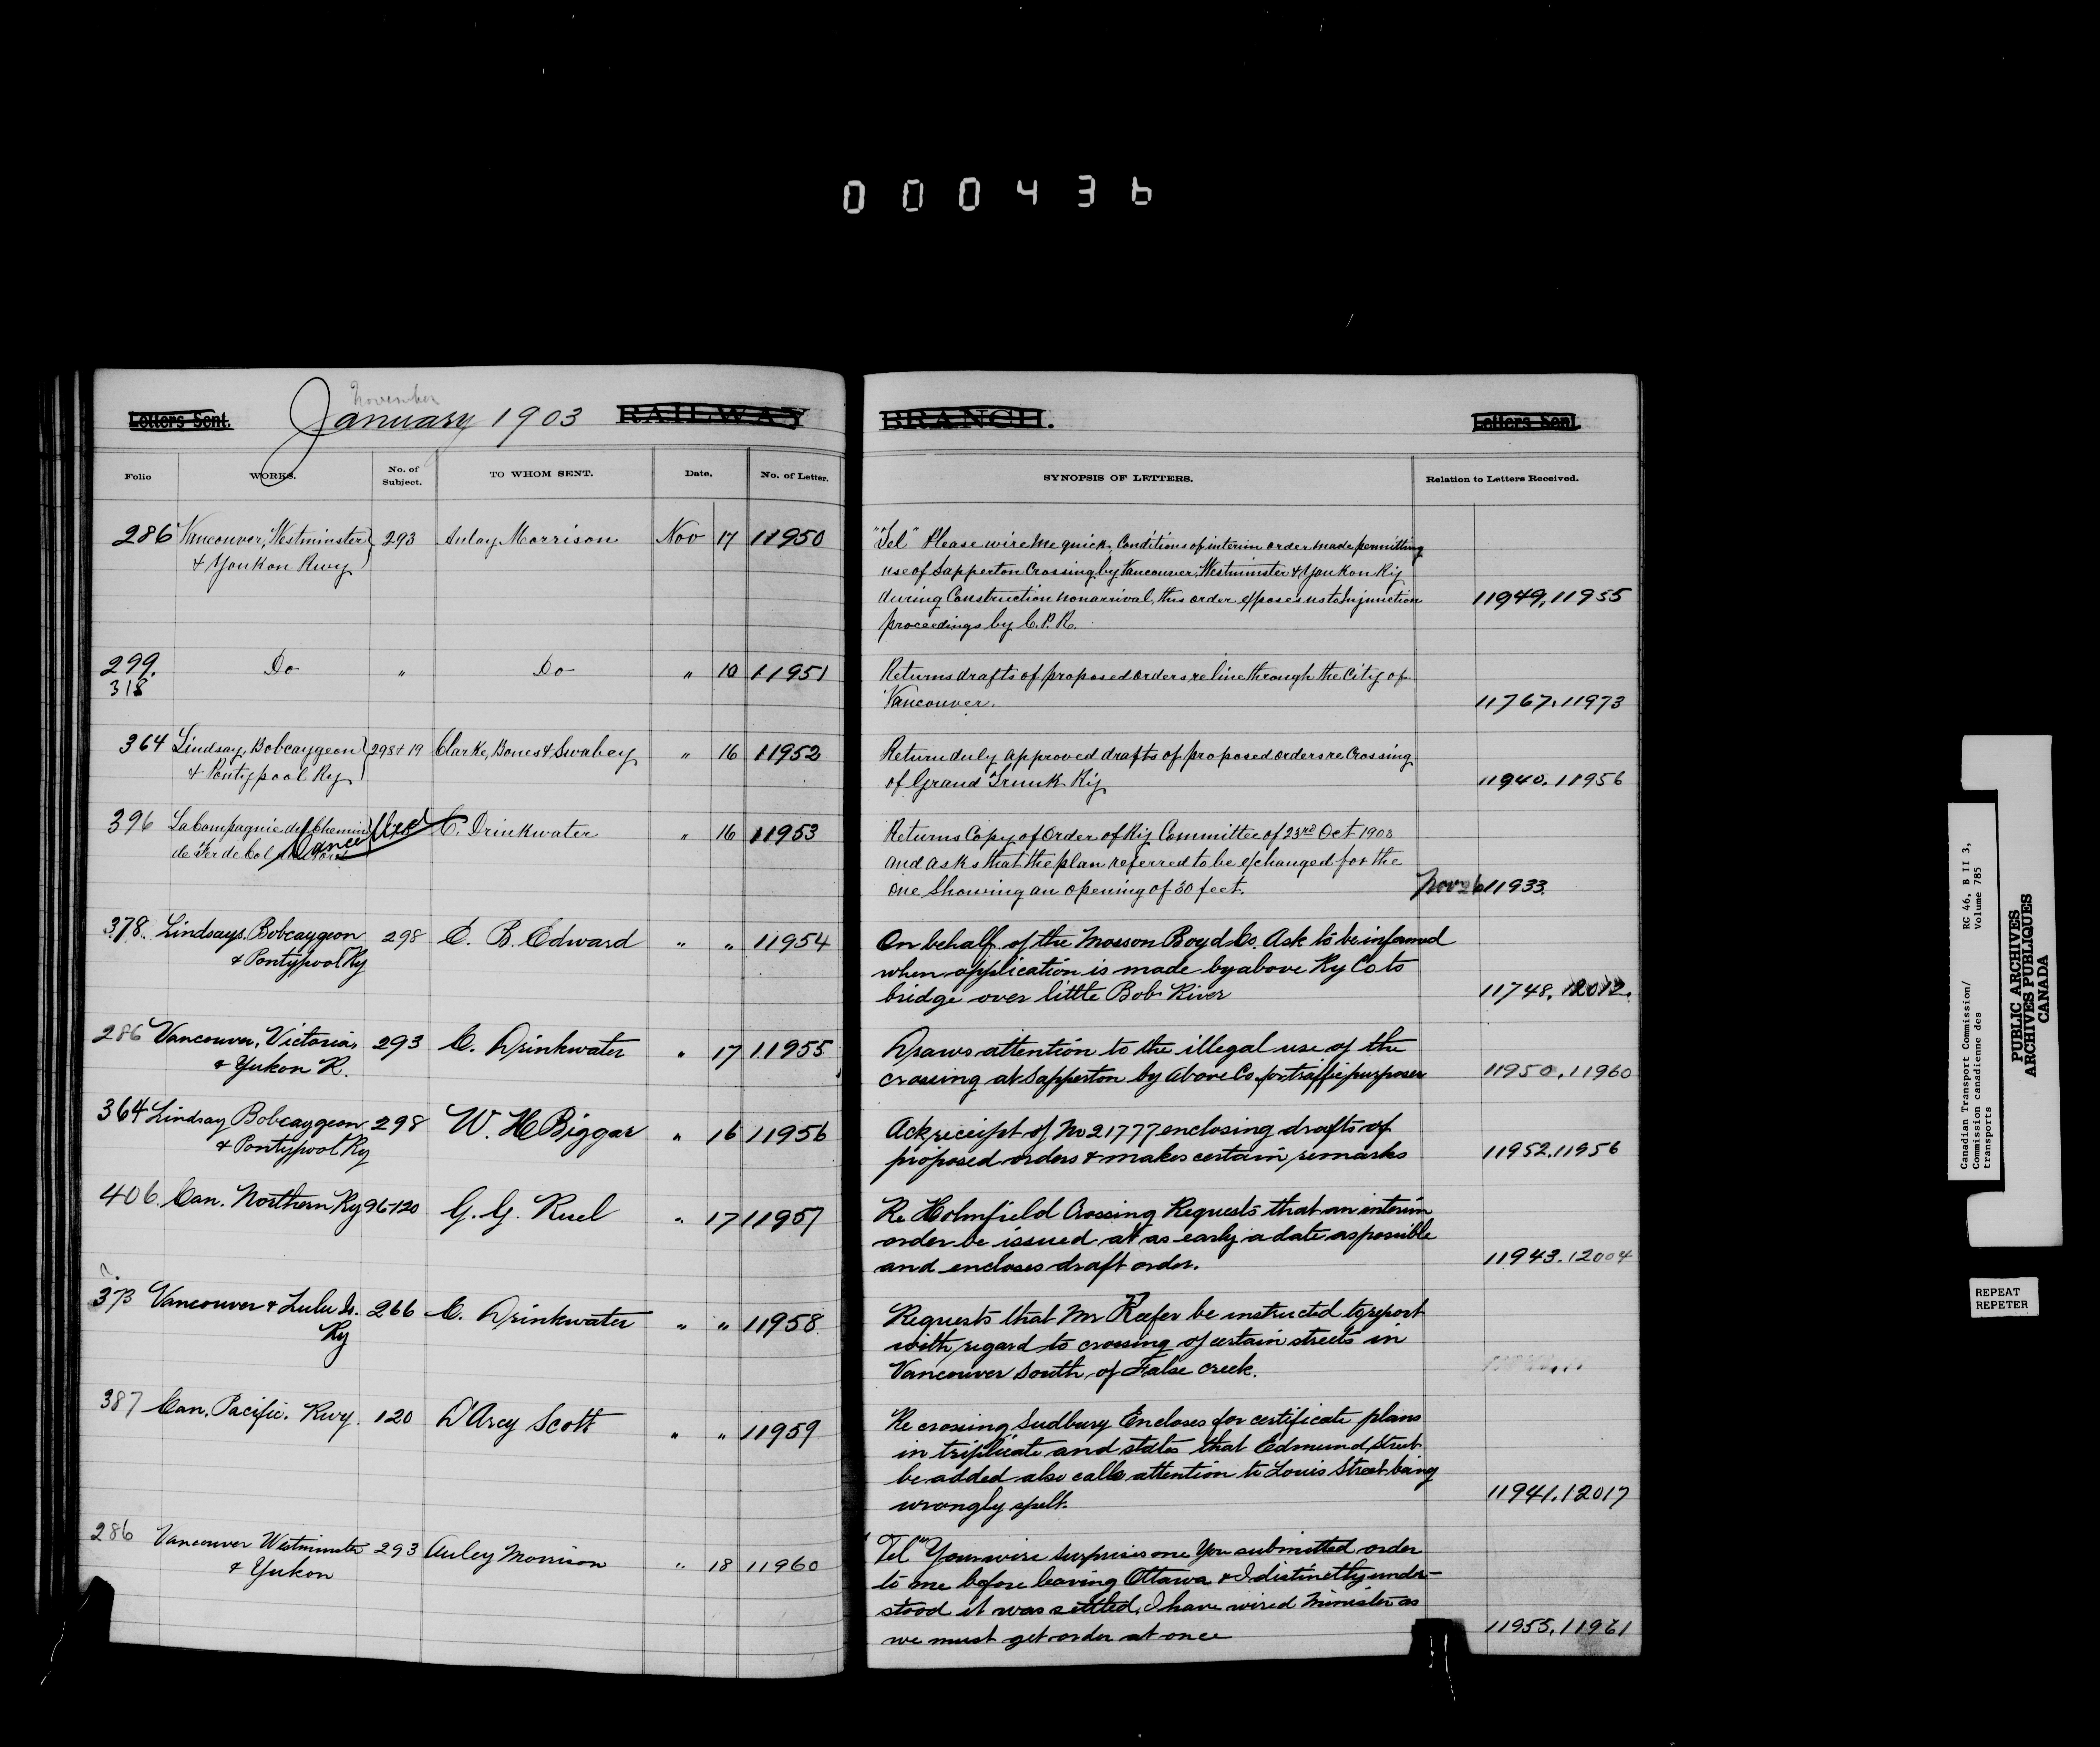 000436
November
Letters Sent. January 1903 RAILWAY BRANCH. Letters Sent.
Folio WORKS. No. of Subject. TO WHOM SENT. Date. No. of Letter. SYNOPSIS OF LETTERS. Relation to Letters Received.
286 Vancouver, Westminster 293 Aulay Morrison Nov 17 11950 "Tel" Please wire me quick, Conditions of interim order made permitting
& Youkon Rwy use of Sapperton Crossing by Vancouver, Westminster & Youkon Ry
during Construction nonarrival, this order exposes us to Injunction 11949, 11955
proceedings by C.P.R.
299. Do " Do " 10 11951 Returns drafts of proposed orders re line through the City of
318 Vancouver. 11767, 11973
364 Lindsay, Bobcaygeon 298 & 19 Clarke, Bones & Swabey " 16 11952 Return duly approved drafts of proposed orders re Crossing
& Pontypool Ry of Grand Trunk Ry 11940. 11956
396 La Compagnie du Chemin C. Drinkwater " 16 11953 Returns Copy of Order of Ry Committee of 23rd Oct 1903
de Fer de Cancelled and asks that the plan referred to be exchanged for the
one showing an opening of 30 feet. Nov 26 11933.
378. Lindsays. Bobcaygeon 298 C. B. Edward " " 11954 On behalf of the Mosson Boyd Co. Ask to be informed
& Pontypool Ry when application is made by above Ry Co to
bridge over little Bob River 11748, 12012.
286 Vancouver, Victoria, 293 C. Drinkwater " 17 11955 Draws attention to the illegal use of the
& Yukon R. crossing at Sapperton by above Co for traffic purposes 11950, 11960
364 Lindsay Bobcaygeon 298 W. H Biggar " 16 11956 Ack receipt of No 21777 enclosing drafts of
& Pontypool Ry proposed orders & makes certain remarks 11952. 11956
406. Can. Northern Ry 96-120 G. G. Ruel " 17 11957 Re Holmfield Crossing Requests that an interim
order be issued at as early a date as possible
and encloses draft order. 11943. 12004
373 Vancouver & Lulu Is. 266 C. Drinkwater " " 11958 Requests that Mr Keefer be instructed to report
Ry with regard to crossing of certain streets in
Vancouver South of False creek.
387 Can. Pacific. Rwy. 120 D'Arcy Scott " " 11959 Re crossing Sudbury Encloses for certificate plans
in triplicate and states that Edmund Street
be added also calls attention to Louis Street being
wrongly spelt. 11941. 12017
286 Vancouver Westminster 293 Auley Morrison " 18 11960 "Tel" Your wire surprises me You submitted order
& Yukon to me before leaving Ottawa & I distinctly under-
stood it was settled, I have wired Minister as
we must get order at once 11955, 11961
Canadian Transport Commission/ RG 46, B II 3,
Commission canadienne des Volume 785
transports
PUBLIC ARCHIVES
ARCHIVES PUBLIQUES
CANADA
REPEAT
REPETER